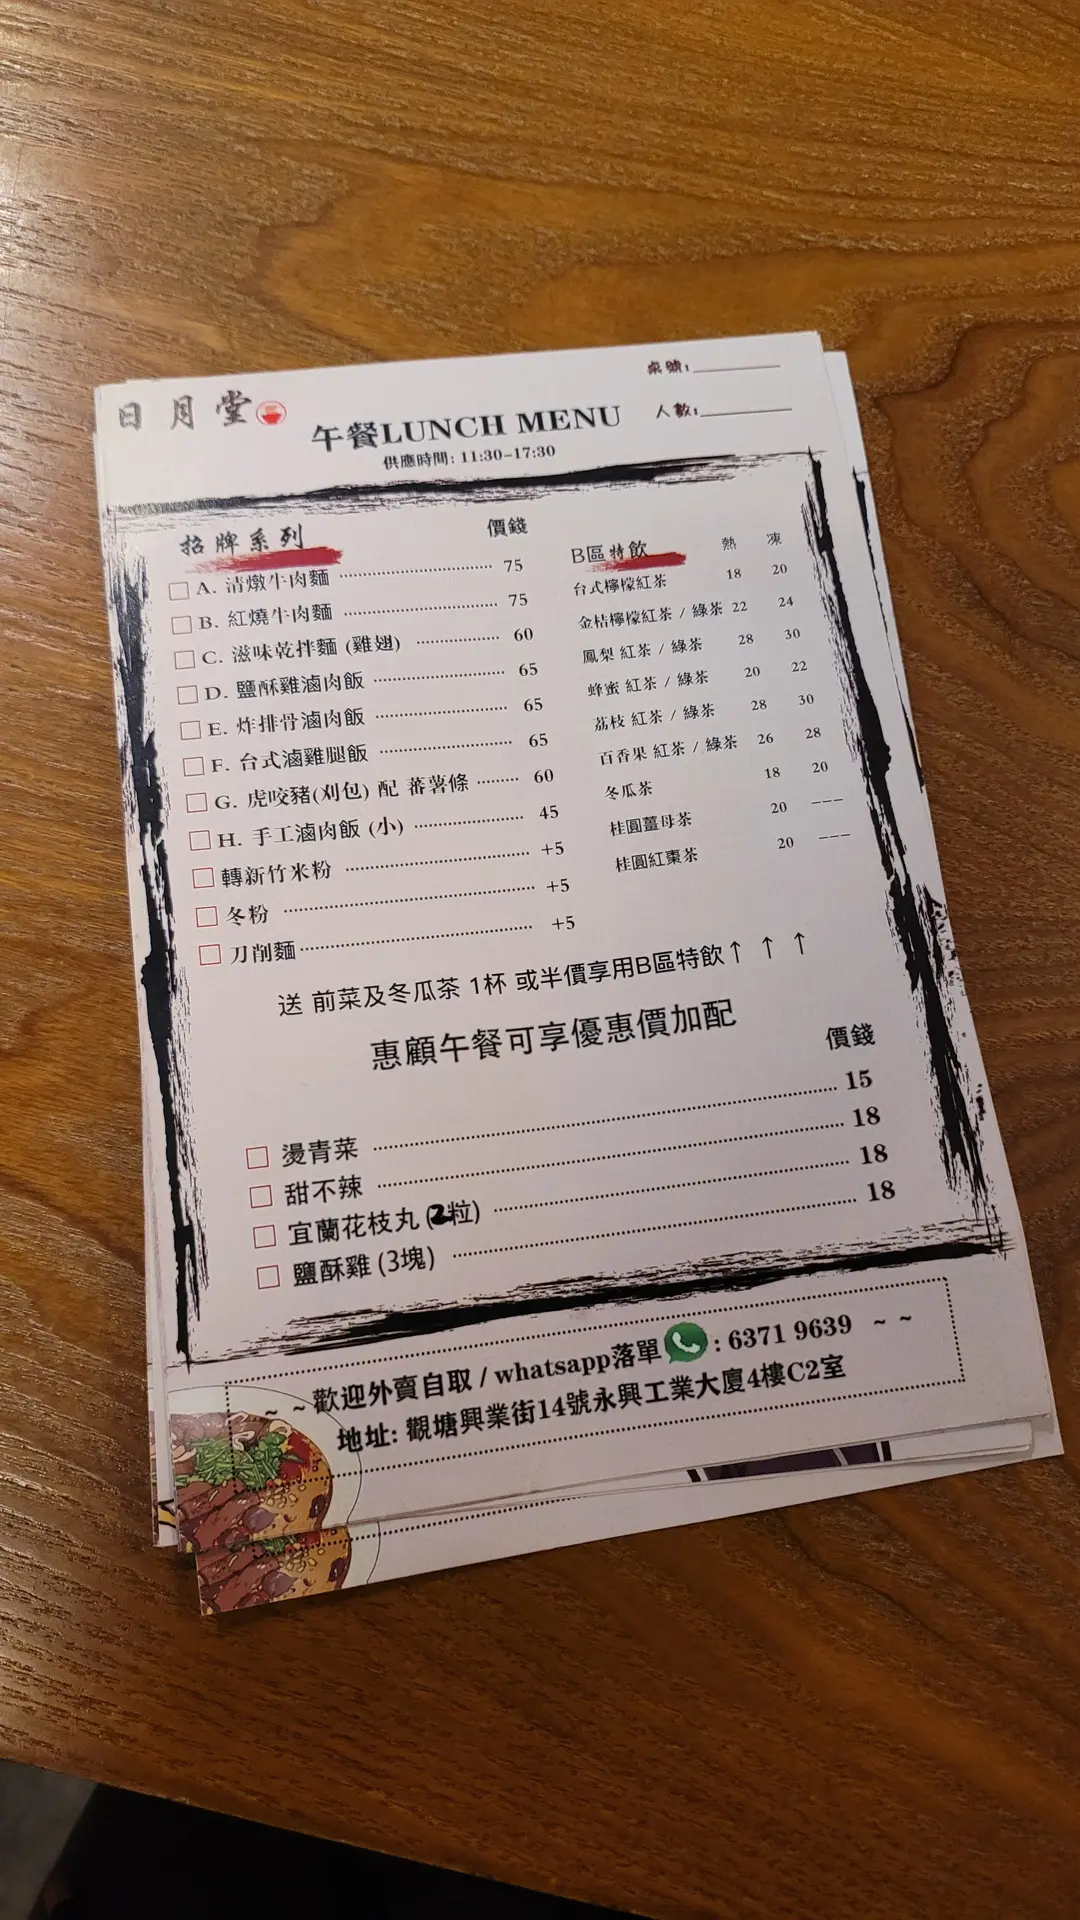 日月堂
桌號:
午餐LUNCH MENU
人數:
供應時間: 11:30-17:30
招牌系列 價錢
A. 清燉牛肉麵 75
B. 紅燒牛肉麵 75
C. 滋味乾拌麵 (雞翅) 60
D. 鹽酥雞滷肉飯 65
E. 炸排骨滷肉飯 65
F. 台式滷雞腿飯 65
G. 虎咬豬(刈包) 配 蕃薯條 60
H. 手工滷肉飯 (小) 45
轉新竹米粉 +5
冬粉 +5
刀削麵 +5
B區特飲 熱 凍
台式檸檬紅茶 18 20
金桔檸檬紅茶 / 綠茶 22 24
鳳梨 紅茶 / 綠茶 28 30
蜂蜜 紅茶 / 綠茶 20 22
荔枝 紅茶 / 綠茶 28 30
百香果 紅茶 / 綠茶 26 28
冬瓜茶 18 20
桂圓薑母茶 20 ---
桂圓紅棗茶 20 ---
送 前菜及冬瓜茶 1杯 或半價享用B區特飲↑ ↑ ↑
惠顧午餐可享優惠價加配
價錢
燙青菜 15
甜不辣 18
宜蘭花枝丸 (2粒) 18
鹽酥雞 (3塊) 18
~ ~歡迎外賣自取 / whatsapp落單 : 6371 9639 ~ ~
地址: 觀塘興業街14號永興工業大廈4樓C2室